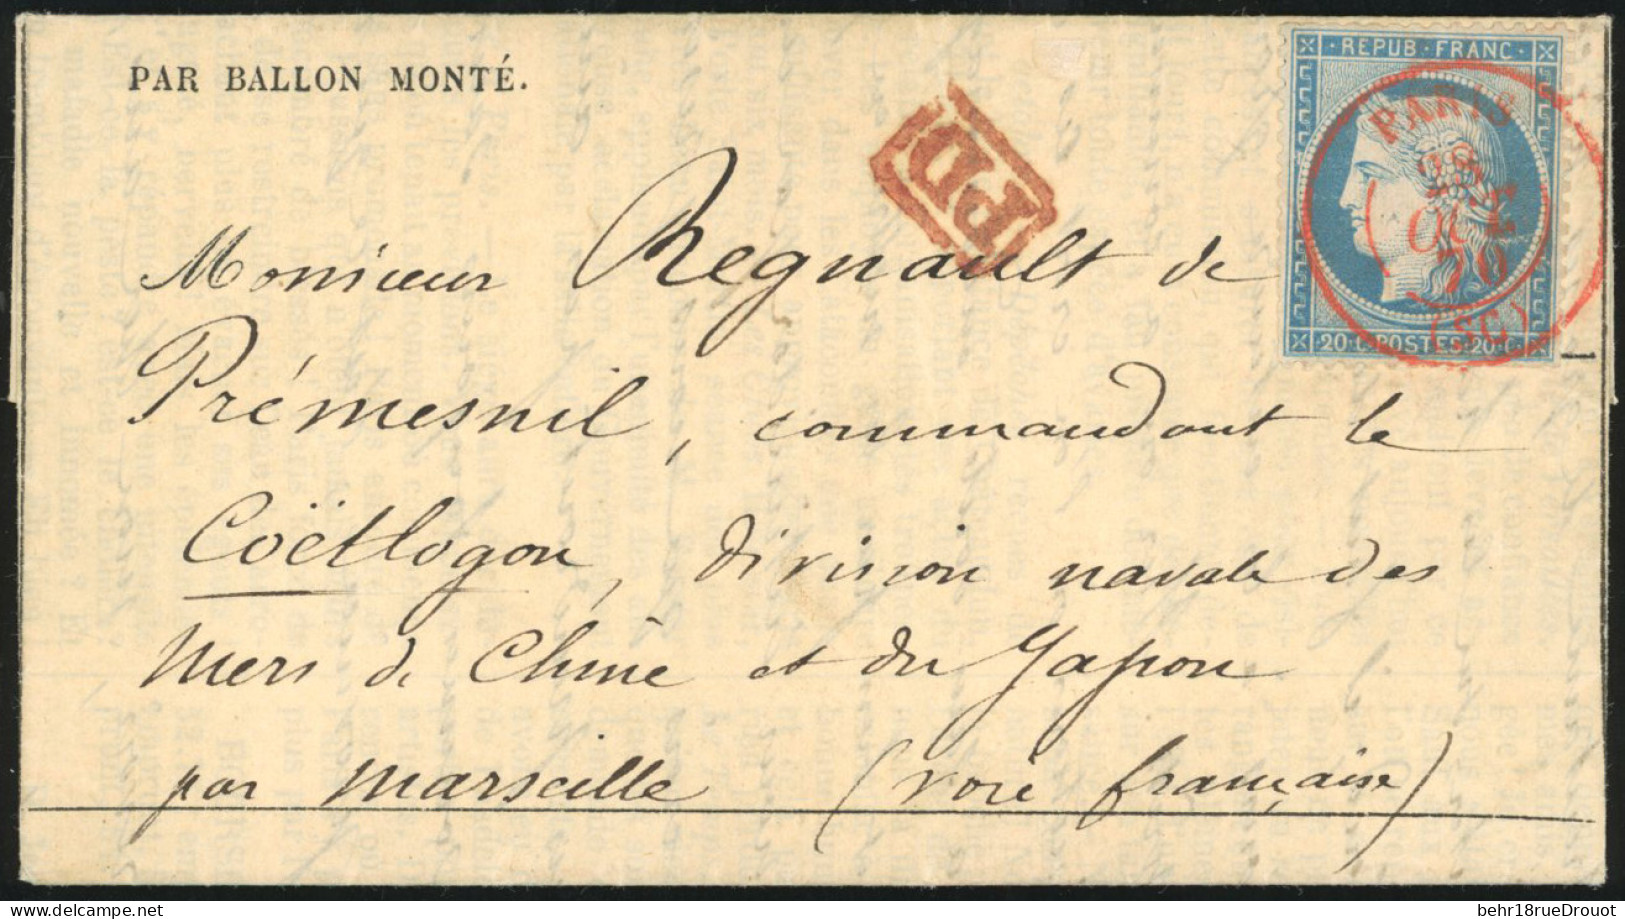 PAR BALLON MONTÉ.
PD
REPUB·FRANC·
PARIS
28
OCT
70
(SC)
20·C·POSTES·20·C·
Monsieur Regnault de
Prémesnil, commandant le
Coëtlogon, division navale des
Mers de Chine et du Japon
par Marseille (voie française)
behr18rueDrouot